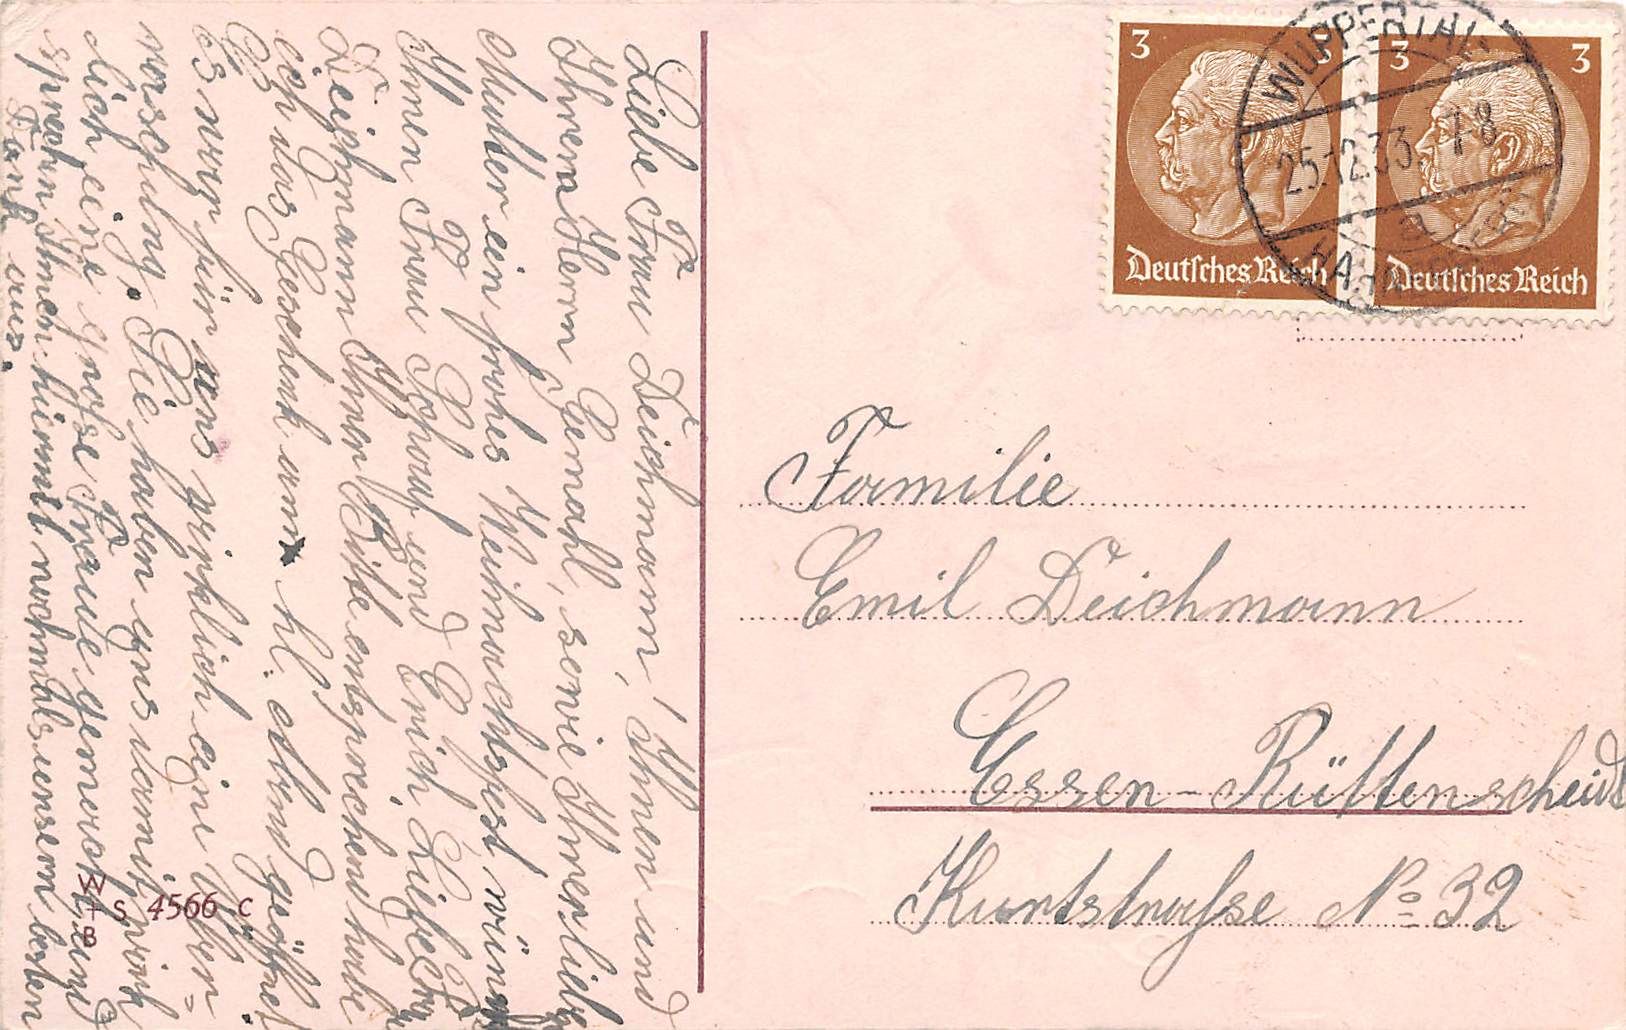 Liebe Frau Deichmann! Ihnen und
Ihrem Herrn Gemahl, sowie Ihrer lieben
Mutter ein frohes Weihnachtsfest wünschen
Ihnen Frau Schaaf und Erich. Liebe Frau
Deichmann Ihrer Bitte entsprechend habe
ich das Geschenk am hl. abend geöffnet
Es war für uns wirklich eine Über=
raschung. Sie haben uns damit wirk
lich eine grosse Freude gemacht, und
sprechen Ihnen hiermit nochmals unsern besten
Dank aus.
W + B S 4566 c
3 3
Deutsches Reich
3 3
Deutsches Reich
WUPPERTAL-
25.12.33. 7-8
Familie
Emil Deichmann
Essen-Rüttenscheid
Kuntstrasse No 32